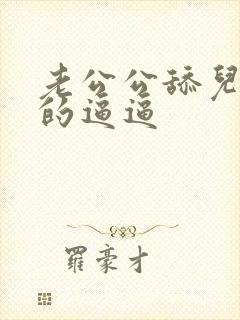 老公公舔兒
的逼逼
羅豪才